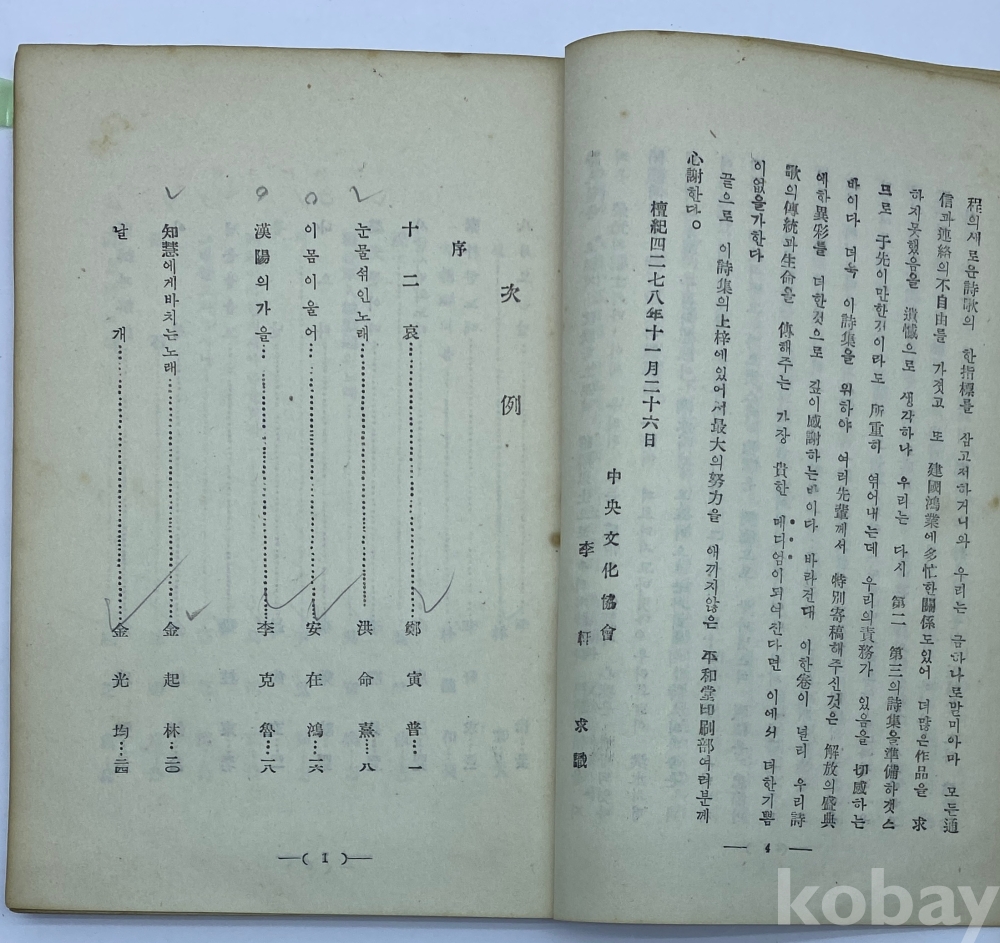 程의새로운詩歌의 한指標를 삼고저하거니와 우리는 금하나로말미아마 모든通
信과連絡의不自由를 가젓고 또 建國鴻業에多忙한關係도있어 더많은作品을 求
하지못했음을 遺憾으로 생각하나 우리는 다시 第二 第三의詩集을準備하겟스
므로 于先이만한것이라도 所重히 엮어내는데 우리의責務가 있음을 切感하는
바이다 더욱 이詩集을 위하야 여러先輩께서 特別寄稿해주신것은 解放의盛典
에한異彩를 더한것으로 깊이感謝하는바이다 바라건대 이한卷이 널리 우리詩
歌의傳統과生命을 傳해주는 가장 貴한 메디엄이되여진다면 이에서 더한기쁨
이없을가한다
끝으로 이詩集의上梓에있어서最大의努力을 애끼지않은 平和堂印刷部여러분께
心謝한다。
檀紀四二七八年十一月二十六日
中央文化協會
李軒求識
4
次例
序
十二哀 鄭寅普 一
눈물섞인노래 洪命熹 八
이몸이울어 安在鴻 一六
漢陽의가을 李克魯 一八
知慧에게바치는노래 金起林 二〇
날개 金光均 二四
(I)
kobay